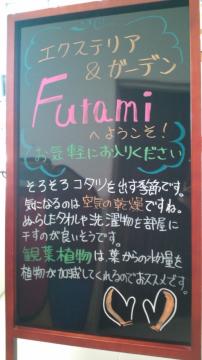 エクステリア
&ガーデン
Futami
へようこそ!
お気軽にお入りください
そろそろコタツを出す季節です。
気になるのは空気の乾燥ですね。
ぬらしたタオルや洗濯物を部屋に
干すのが良いそうです。
観葉植物は葉からの水分量を
植物が加減してくれるのでおススメです。